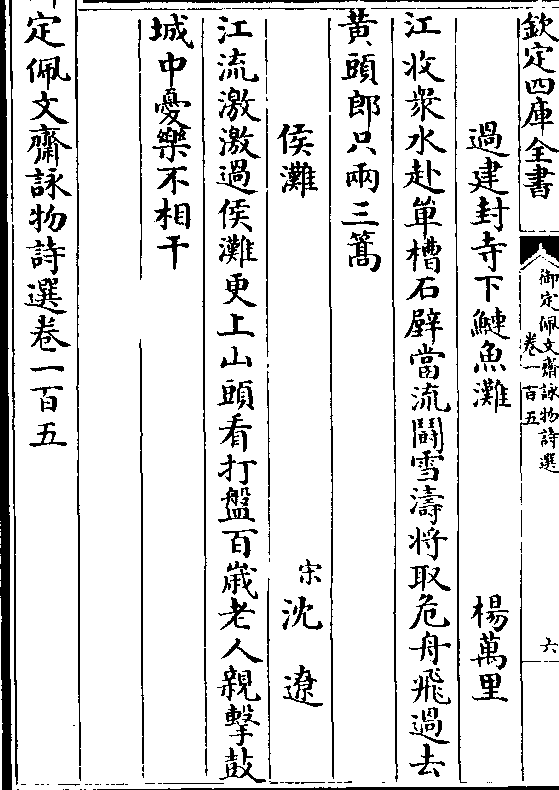 欽定四庫全書
御定佩文齋詠物詩選
卷一百五
六
過建封寺下鰱魚灘
楊萬里
江收衆水赴單槽石壁當流鬭雪濤將取危舟飛過去
黄頭郎只兩三篙
侯灘
宋
沈遼
江流激激過侯灘更上山頭看打盤百歳老人親擊鼓
城中憂樂不相干
定佩文齋詠物詩選卷一百五